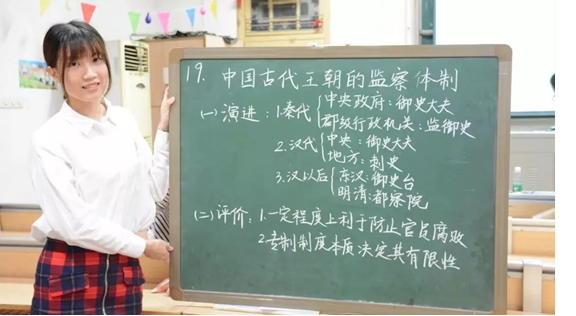 19. 中国古代王朝的监察体制
(一)演进：1.秦代{中央政府：御史大夫
郡级行政机关：监御史
2.汉代{中央：御史大夫
地方：刺史
3.汉以后{东汉：御史台
明清：都察院
(二)评价：1.一定程度上利于防止官员腐败
2.专制制度本质决定其有限性